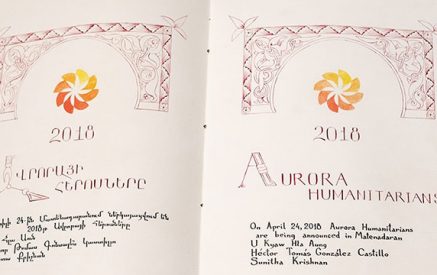 2018
ՎՐՈՐԱՅԻ
ՀԵՐՈՍՆԵՐԸ
24-ին Մատենադարանում ներկայացվում են
2018թ. Ավրորայի հերոսները
2018
AURORA
HUMANITARIANS
On April 24, 2018 Aurora Humanitarians
are being announced in Matenadaran
U Kyaw Hla Aung
Héctor Tomás González Castillo
Sunitha Krishnan